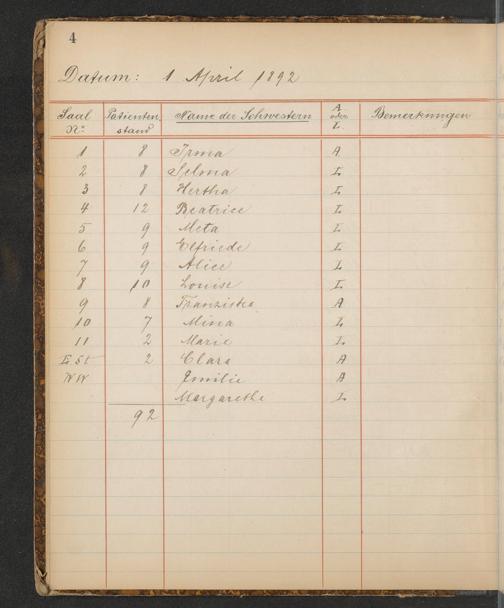 4
Datum: 1 April 1892
Saal Nº Patienten stand Name der Schwestern A oder L Bemerkungen
1 8 Irma A
2 8 Selma L
3 8 Hertha L
4 12 Beatrice L
5 9 Meta L
6 9 Elfriede L
7 9 Alice L
8 10 Louise L
9 8 Franziska A
10 7 Mina L
11 2 Marie L
2 Clara A
Emilie A
Margarethe L
92